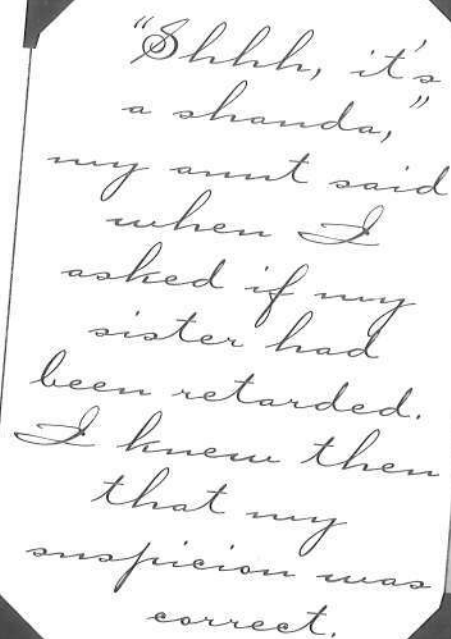 “Shhh, it's
a shanda,”
my aunt said
when I
asked if my
sister had
been retarded.
I knew then
that my
suspicion was
correct.